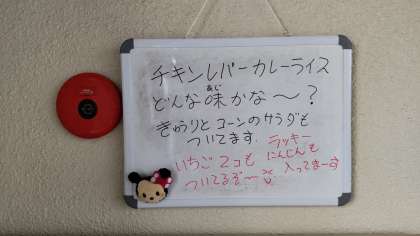 チキンレバーカレーライス
どんな味かな～？
あじ
きゅうりとコーンのサラダも
ついてます。
いちご2コも
ついてるぞ～
ラッキー
にんじんも
入ってまーす